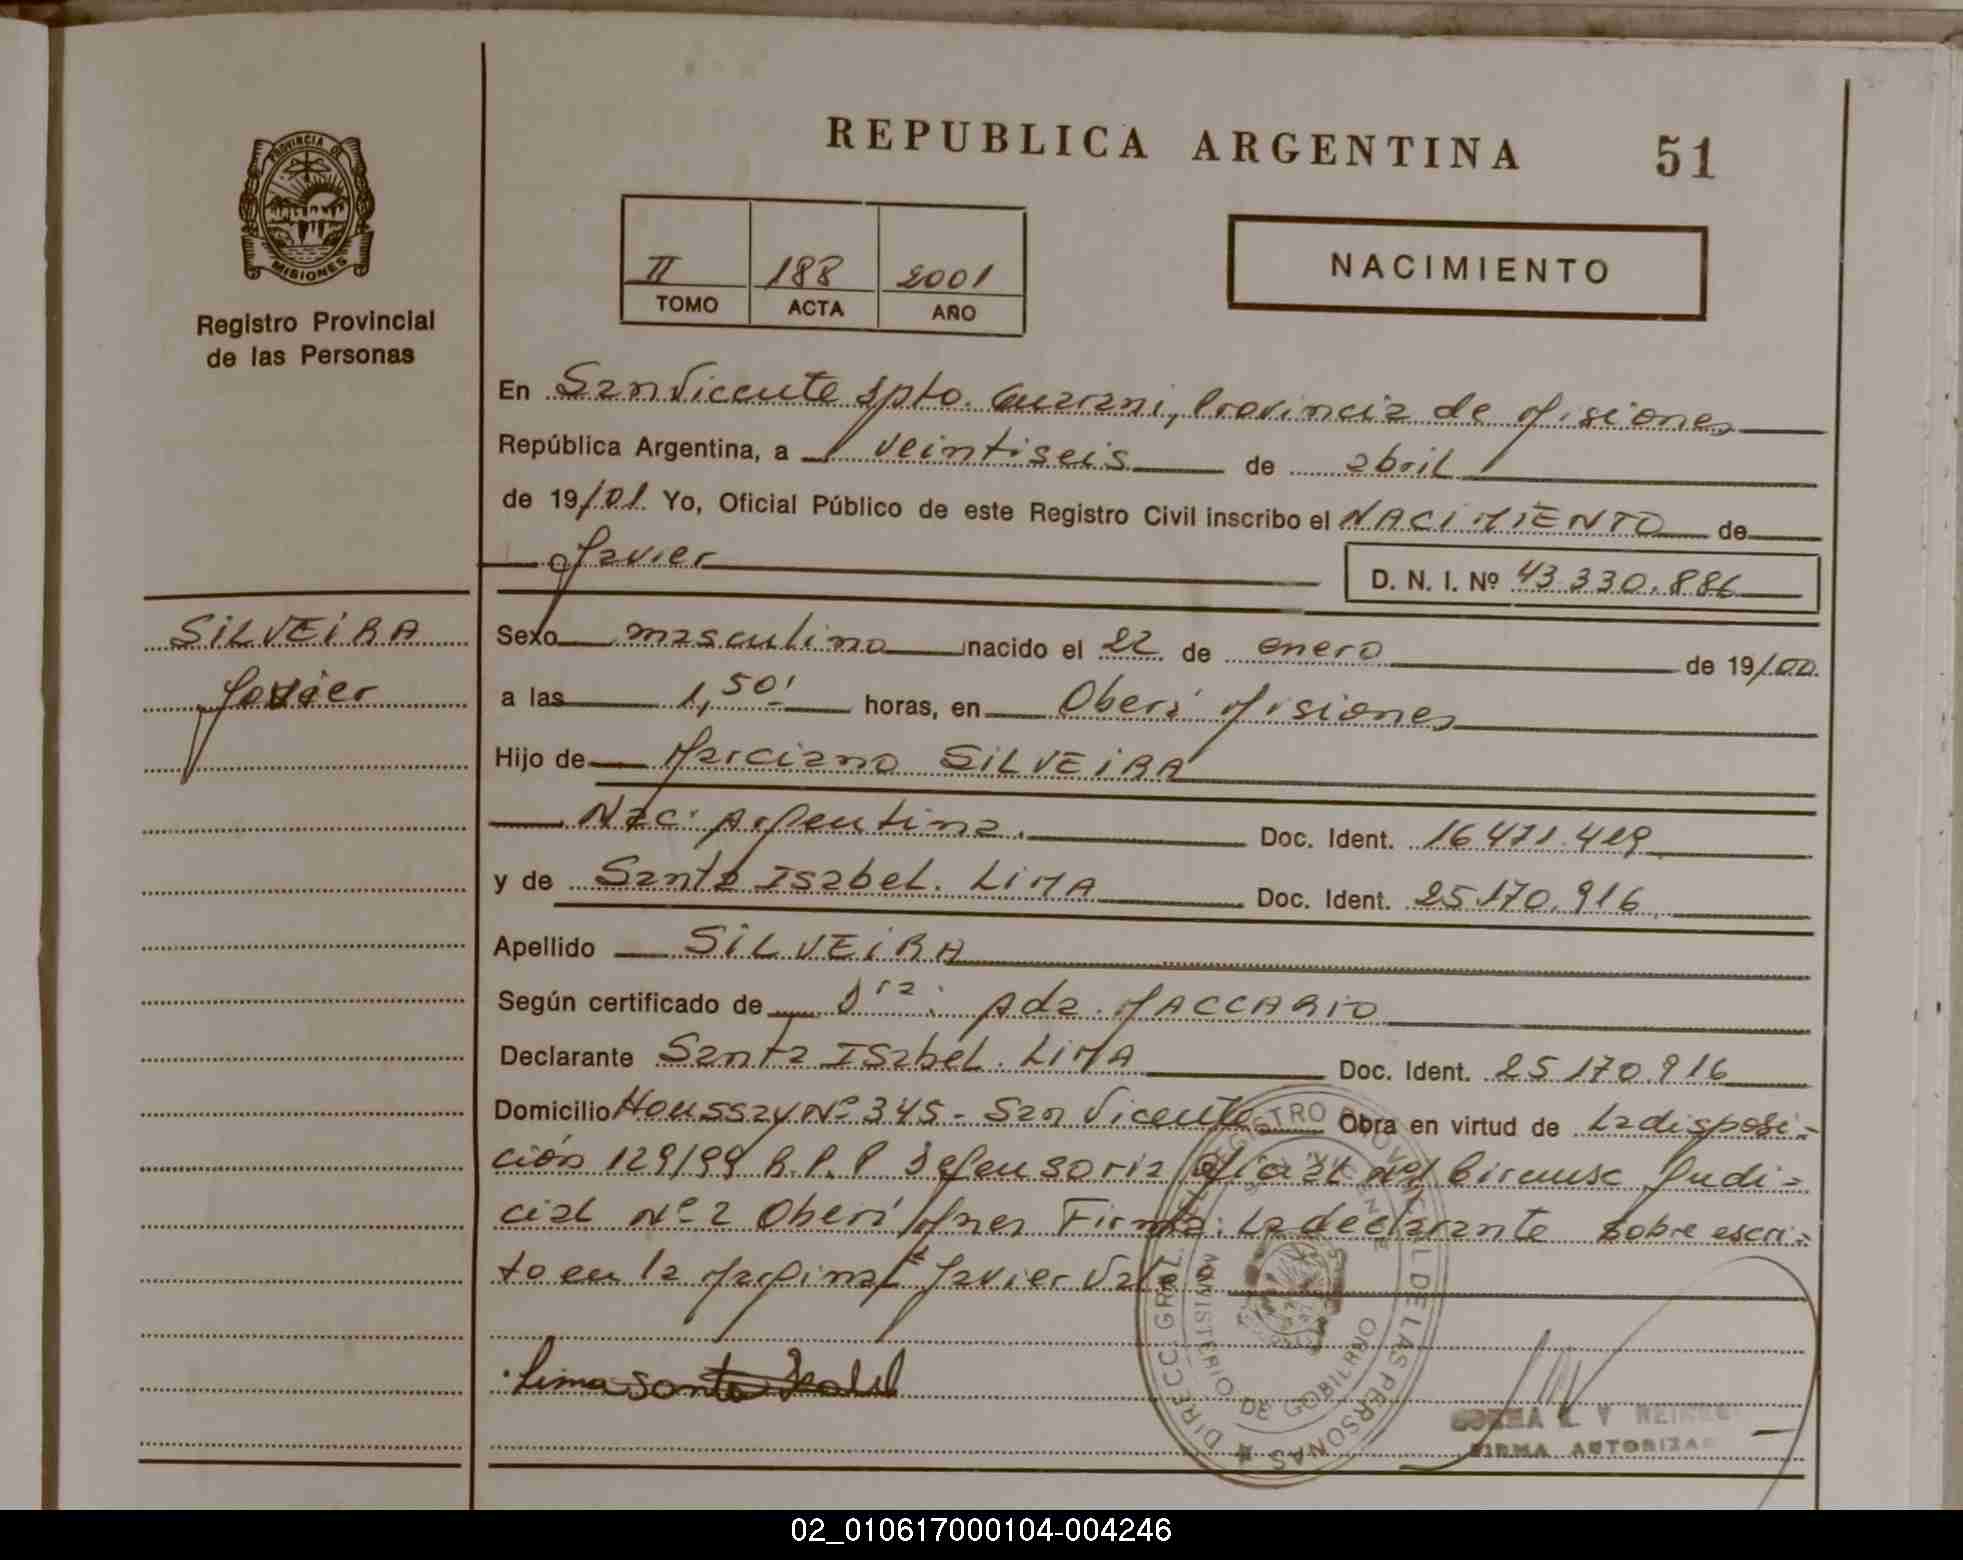 REPUBLICA ARGENTINA 51
PROVINCIA DE
MISIONES
Registro Provincial
de las Personas
II 188 2001
TOMO ACTA AÑO
NACIMIENTO
En San Vicente Dpto. Guarani, Provincia de Misiones
República Argentina, a veintiseis de abril
de 19/01. Yo, Oficial Público de este Registro Civil inscribo el NACIMIENTO de
Javier
D. N. I. Nº 43.330.886
SILVEIRA
Javier
Sexo masculino nacido el 22 de enero de 19/00.
a las 1,50' horas, en Oberá Misiones
Hijo de Marciano SILVEIRA
Nac. Argentina. Doc. Ident. 16.471.419
y de Santa Isabel. LIMA Doc. Ident. 25.170.916
Apellido SILVEIRA
Según certificado de Dra. Ada. MACCARIO
Declarante Santa Isabel. LIMA Doc. Ident. 25.170.916
Domicilio Houssay Nº 345 - San Vicente Obra en virtud de La disposi=
ción 129/99 R.P.P Defensoria Oficial del Judi=
cial Nº 2 Oberá Mnes Firma: La declarante Sobre escri=
to en la Marginal Javier Vale
Lima Santa Isabel
DIRECC. GRAL. DEL REGISTRO PROVINCIAL DE LAS PERSONAS
MINISTERIO DE GOBIERNO
SAN VICENTE
FIRMA AUTORIZAD
02_010617000104-004246